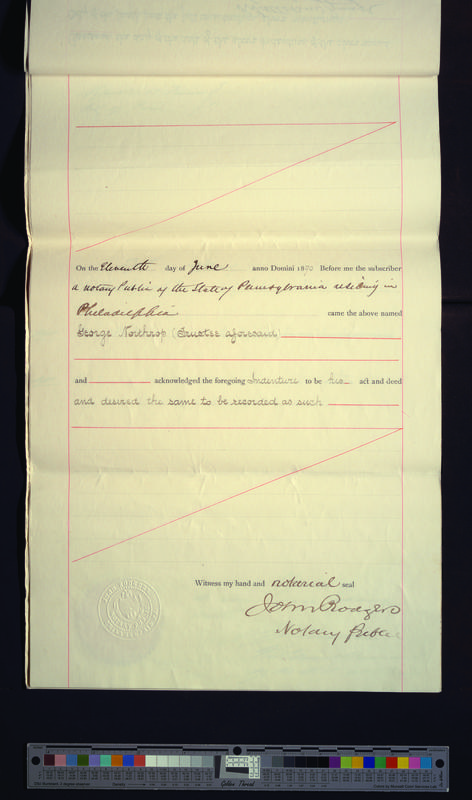 On the Eleventh day of June anno Domini 1890 Before me the subscriber
a notary Public of the State of Pennsylvania residing in
Philadelphia came the above named
George Northrop (Trustee aforesaid)
and acknowledged the foregoing Indenture to be his act and deed
and desired the same to be recorded as such
Witness my hand and notarial seal
John Rodgers
Notary Public
Golden Thread